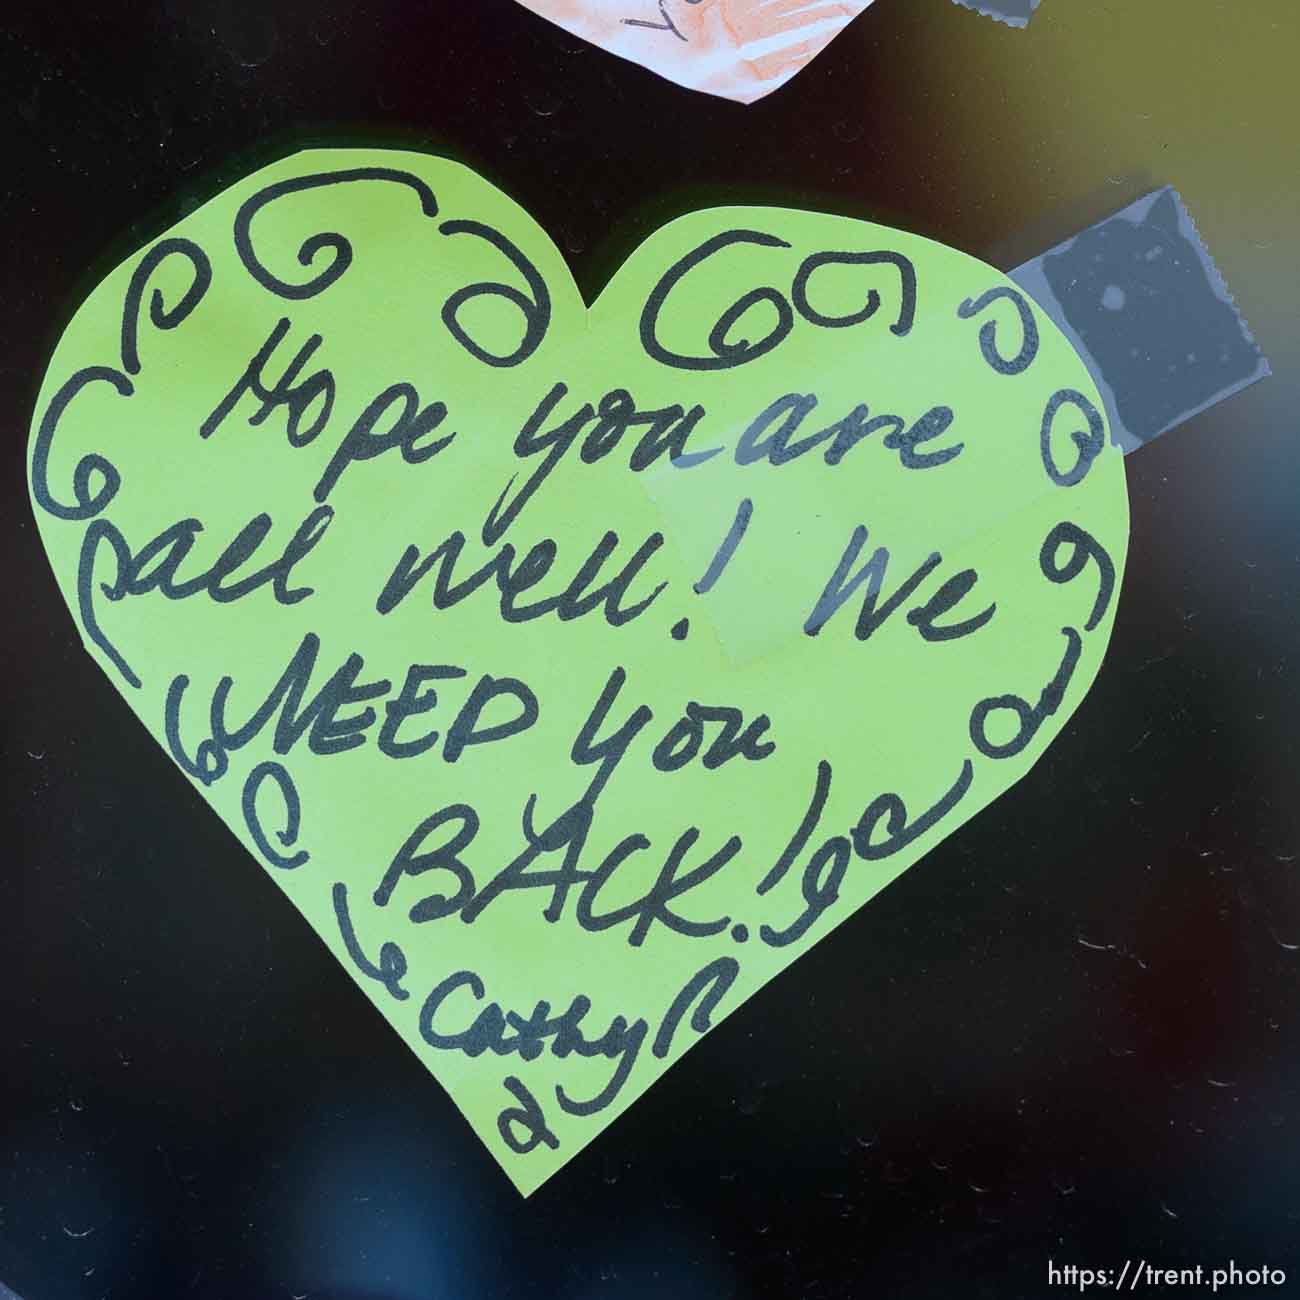 Hope you are
all well! We
NEED you
BACK!
Cathy
https://trent.photo